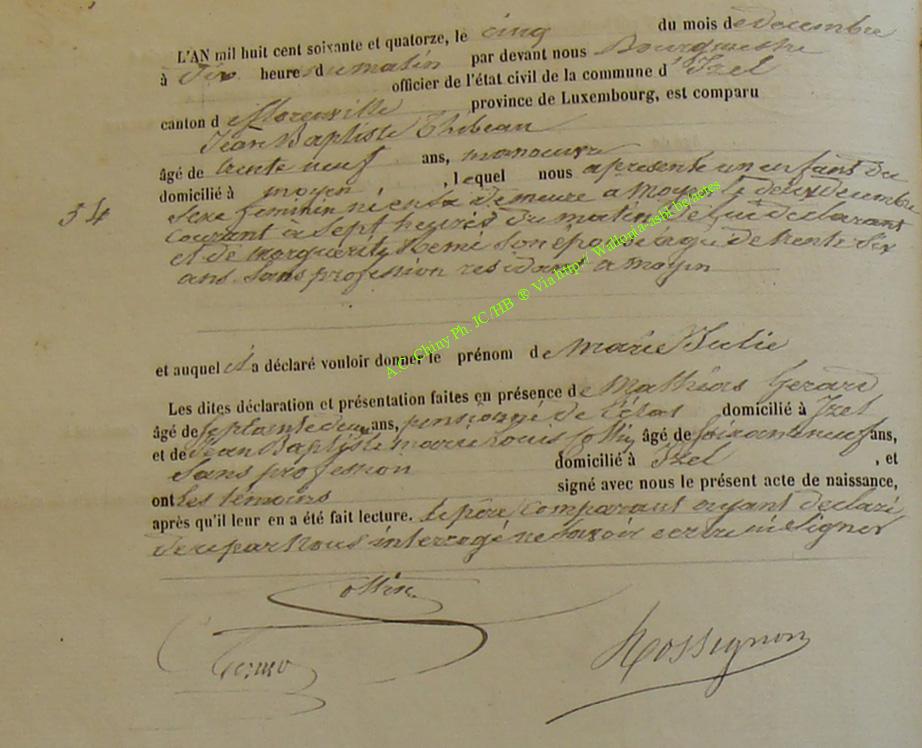 L'AN mil huit cent soixante et quatorze, le cinq du mois de decembre
à dix heures du matin par devant nous Bourgmestre
officier de l'état civil de la commune d'Izel
canton de florenville province de Luxembourg, est comparu
Jean Baptiste Thibeau
âgé de trente neuf ans, manoeuvre
domicilié à moyen, lequel nous a presenté un enfant du
54
sexe feminin né en sa demeure a Moyen le deux decembre
courant a sept heures du matin de lui declarant
et de marguerite Remi son épouse agée de trente six
ans sans profession residant a moyen
et auquel il a déclaré vouloir donner le prénom de Marie Julie
Les dites déclaration et présentation faites en présence de Mathias Gerard
âgé de septante deux ans, pensionné de l'état domicilié à Izel
et de Jean Baptiste marie Louis Collin âgé de soixante neuf ans,
sans profession domicilié à Izel, et
ont Les témoins signé avec nous le présent acte de naissance,
après qu'il leur en a été fait lecture. Le père comparant ayant declaré
de ce par Nous interrogé ne savoir ecrire ni signer
Collin
Rossignon
A.C. Chiny Ph. JC/HB ® Via http// Wallonia-asbl.be/acres